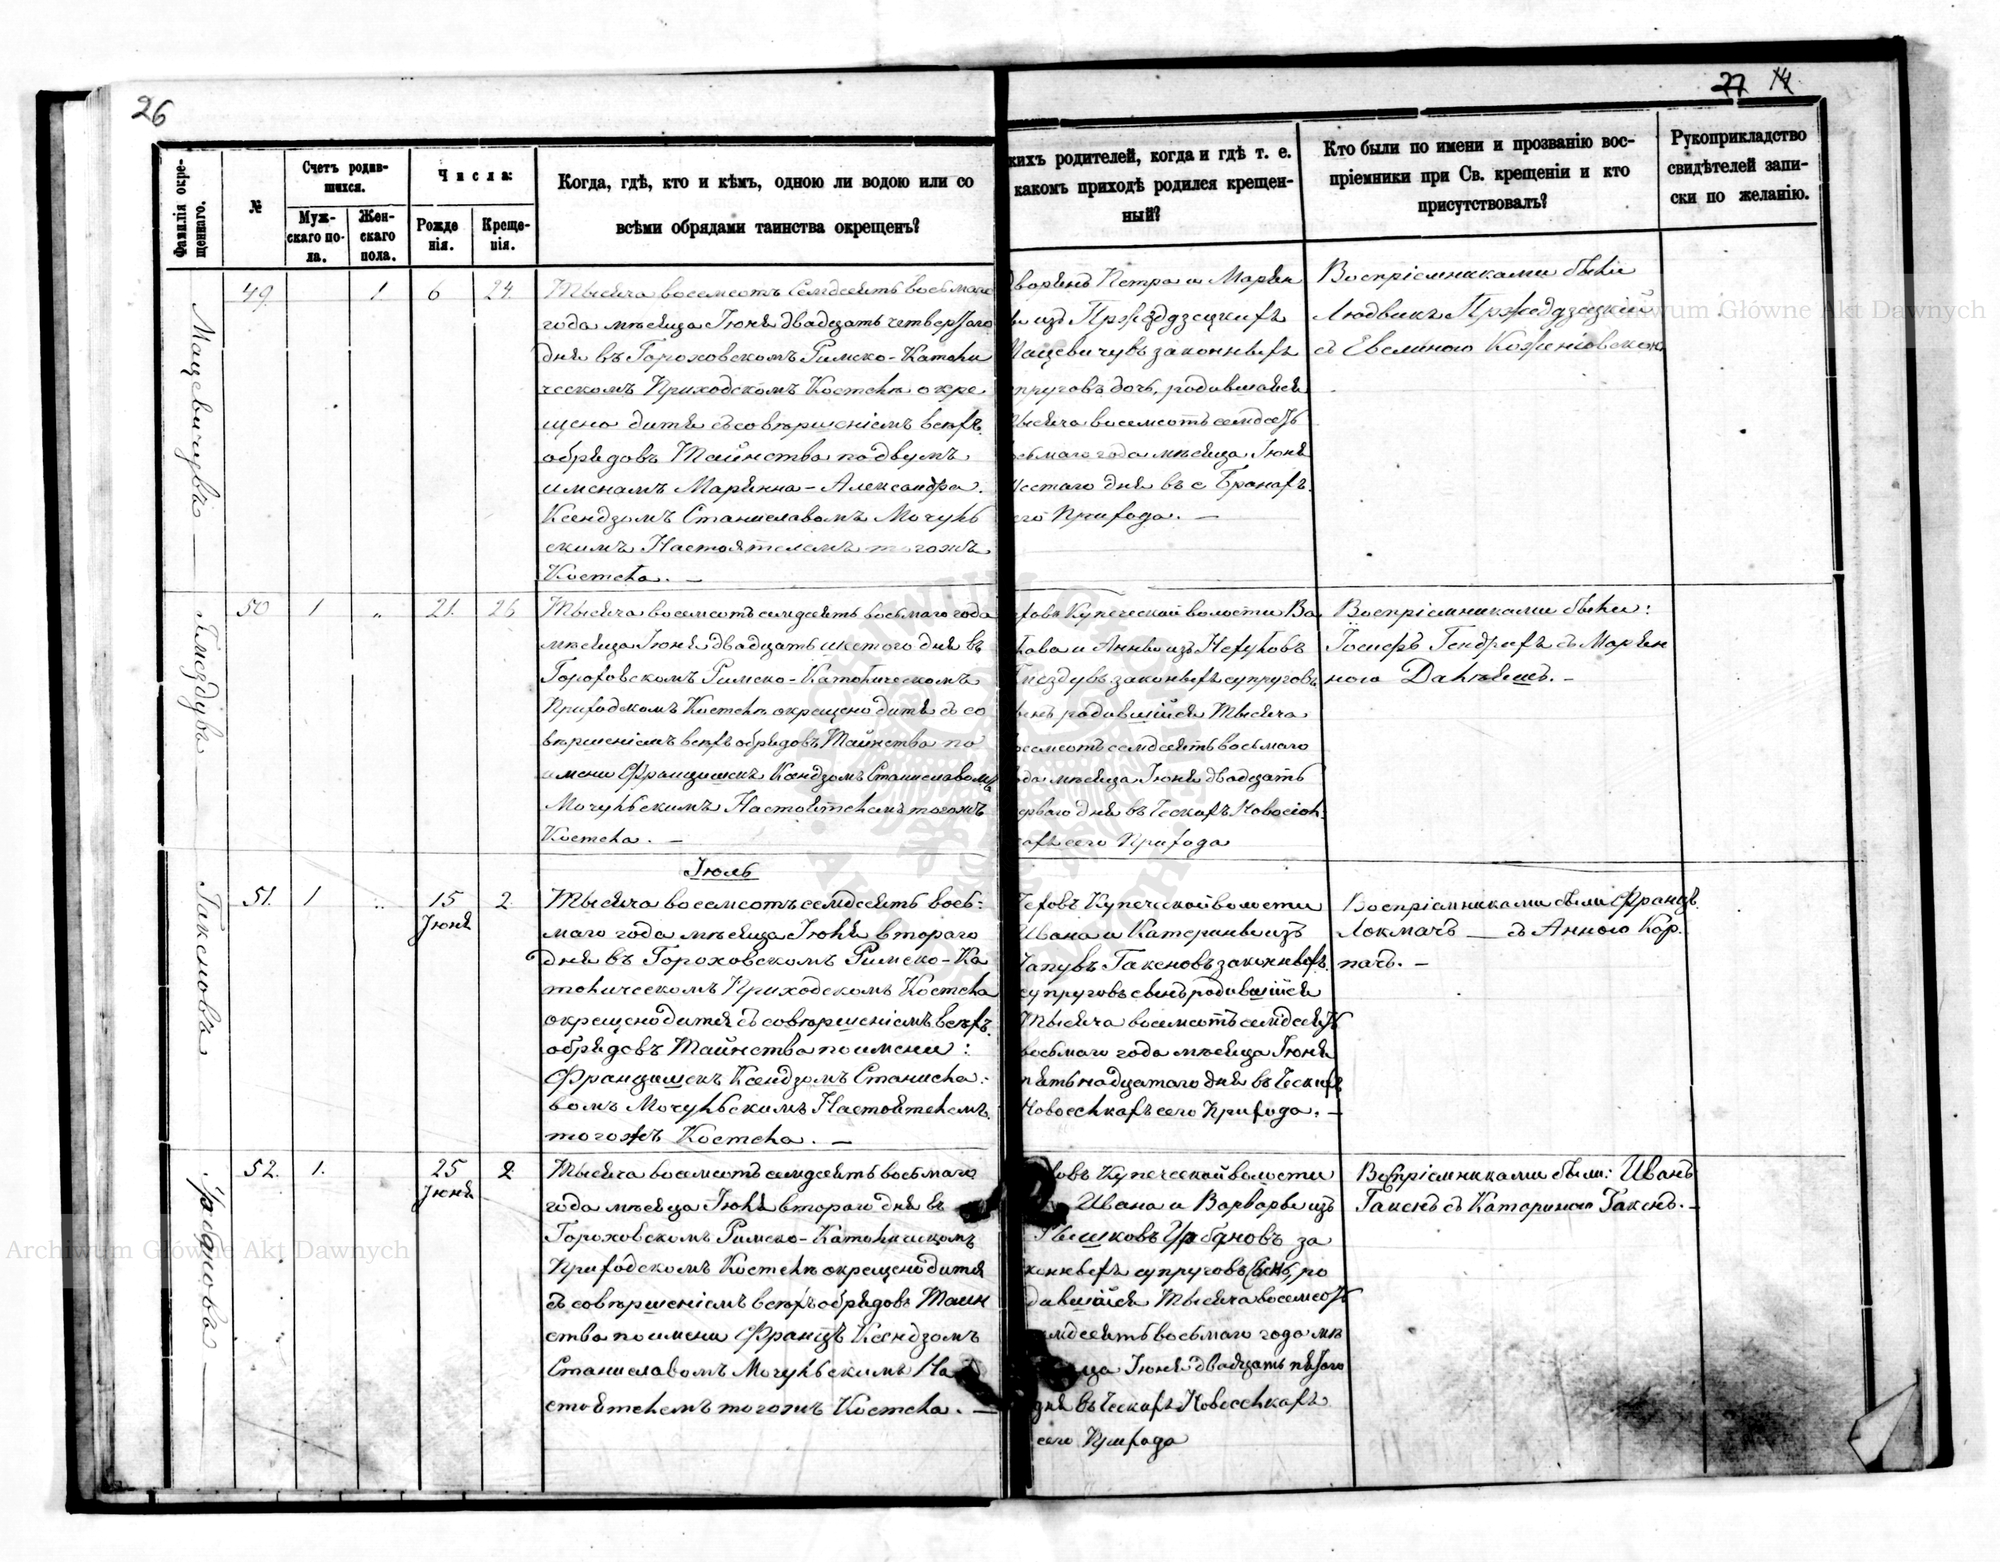 26
27 14
Фамилія окре-
щеннаго.
№
Счетъ родив-
шихся.
Муж-
скаго по-
ла.
Жен-
скаго
пола.
Числа:
Рожде
нія.
Креще-
нія.
Когда, гдѣ, кто и кѣмъ, одною ли водою или со
всѣми обрядами таинства окрещенъ?
кихъ родителей, когда и гдѣ т. е.
какомъ приходѣ родился крещен-
ный?
Кто были по имени и прозванію вос-
пріемники при Св. крещеніи и кто
присутствовалъ?
Рукоприкладство
свидѣтелей запи-
ски по желанію.
Мацевичувъ
49 1 6 24
Тысяча восемсотъ семдесять восьмаго
года мѣсяца Іюня двадцать четвертаго
дня въ Гороховскомъ Римско-Католи
ческомъ Приходскомъ Костелѣ окре
щено дитя съ совершеніемъ всѣхъ
обрядовъ Таинства подвумъ
именамъ Марянна-Александра.
Ксендзомъ Станиславомъ Мочуль
скимъ Настоятелемъ тогожъ
Костела. —
Дворянъ Петра и Маріян
ы изъ Пржездзецкихъ
Мацевичувъ законныхъ
супруговъ дочь, родившаяся
тысяча восемсотъ семдесять
осьмаго года мѣсяца Іюня
шестаго дня въ с Бранахъ
сего Прихода. —
Воспріемниками были
Людвикъ Пржездзецкій
съ Евелиною Корженіовскою
Гнездувъ
50 1 „ 21 26
Тысяча восемсотъ семдесять восьмаго года
мѣсяца Іюня двадцать шестого дня въ
Гороховскомъ Римско-Католическомъ
Приходскомъ Костелѣ окрещено дитя съ со
вершеніемъ всѣхъ обрядовъ Таинства по
имени Францишекъ Ксендзомъ Станиславомъ
Мочульскимъ Настоятелемъ тогожъ
Костела. —
еховъ Купеческой волости Ва
лава и Анны изъ
Гнездувъ законныхъ супруговъ
сынъ родившійся тысяча
восемсотъ семдесять восьмаго
года мѣсяца Іюня двадцать
перваго дня въ Ческахъ Новосіол
кахъ сего Прихода
Воспріемниками были:
Іосифъ Гендрихъ съ Маріян
ною Далѣешъ. —
Іюль
Гаксновъ
51. 1 „ 15
Іюня 2
Тысяча восемсотъ семдесять вось-
маго года мѣсяца Іюля второго
дня въ Гороховскомъ Римско-Ка
толическомъ Приходскомъ Костела
окрещено дитя съ совершеніемъ всѣхъ
обрядовъ Таинства по имени:
Францишекъ Ксендзомъ Станисла-
вомъ Мочульскимъ Настоятелемъ
тогожъ Костела. —
Чеховъ Купеческой волости
Ивана и Катерины изъ
Чапувъ Гаксновъ законныхъ
супруговъ сынъ родившійся
Тысяча восемсотъ семдесять
восьмаго года мѣсяца Іюня
пятьнадцатаго дня въ Ческихъ
Новоселкахъ сего Прихода. —
Воспріемниками были Францъ
Локмачъ — съ Анною Кор.
пачъ. —
Урбановъ
52. 1. 25
Іюня 2
Тысяча восемсотъ семдесять восьмаго
года мѣсяца Іюля второго дня въ
Гороховскомъ Римско-Католическомъ
Приходскомъ Костелѣ окрещено дитя
съ совершеніемъ всѣхъ обрядовъ Таин
ства по имени Францъ Ксендзомъ
Станиславомъ Мочульскимъ На
стоятелемъ тогожъ Костела. —
ховъ Купеческой волости
Ивана и Варвары изъ
Гвышковъ Урбановъ за
конныхъ супруговъ сынъ, ро
дившійся Тысяча восемсотъ
семдесять восьмаго года мѣ
сяца Іюня двадцать пятого
дня въ Ческахъ Новоселкахъ
сего Прихода
Воспріемниками были: Иванъ
Гакснъ съ Катариною Гакснъ. —
Archiwum Główne Akt Dawnych
Archiwum Główne Akt Dawnych